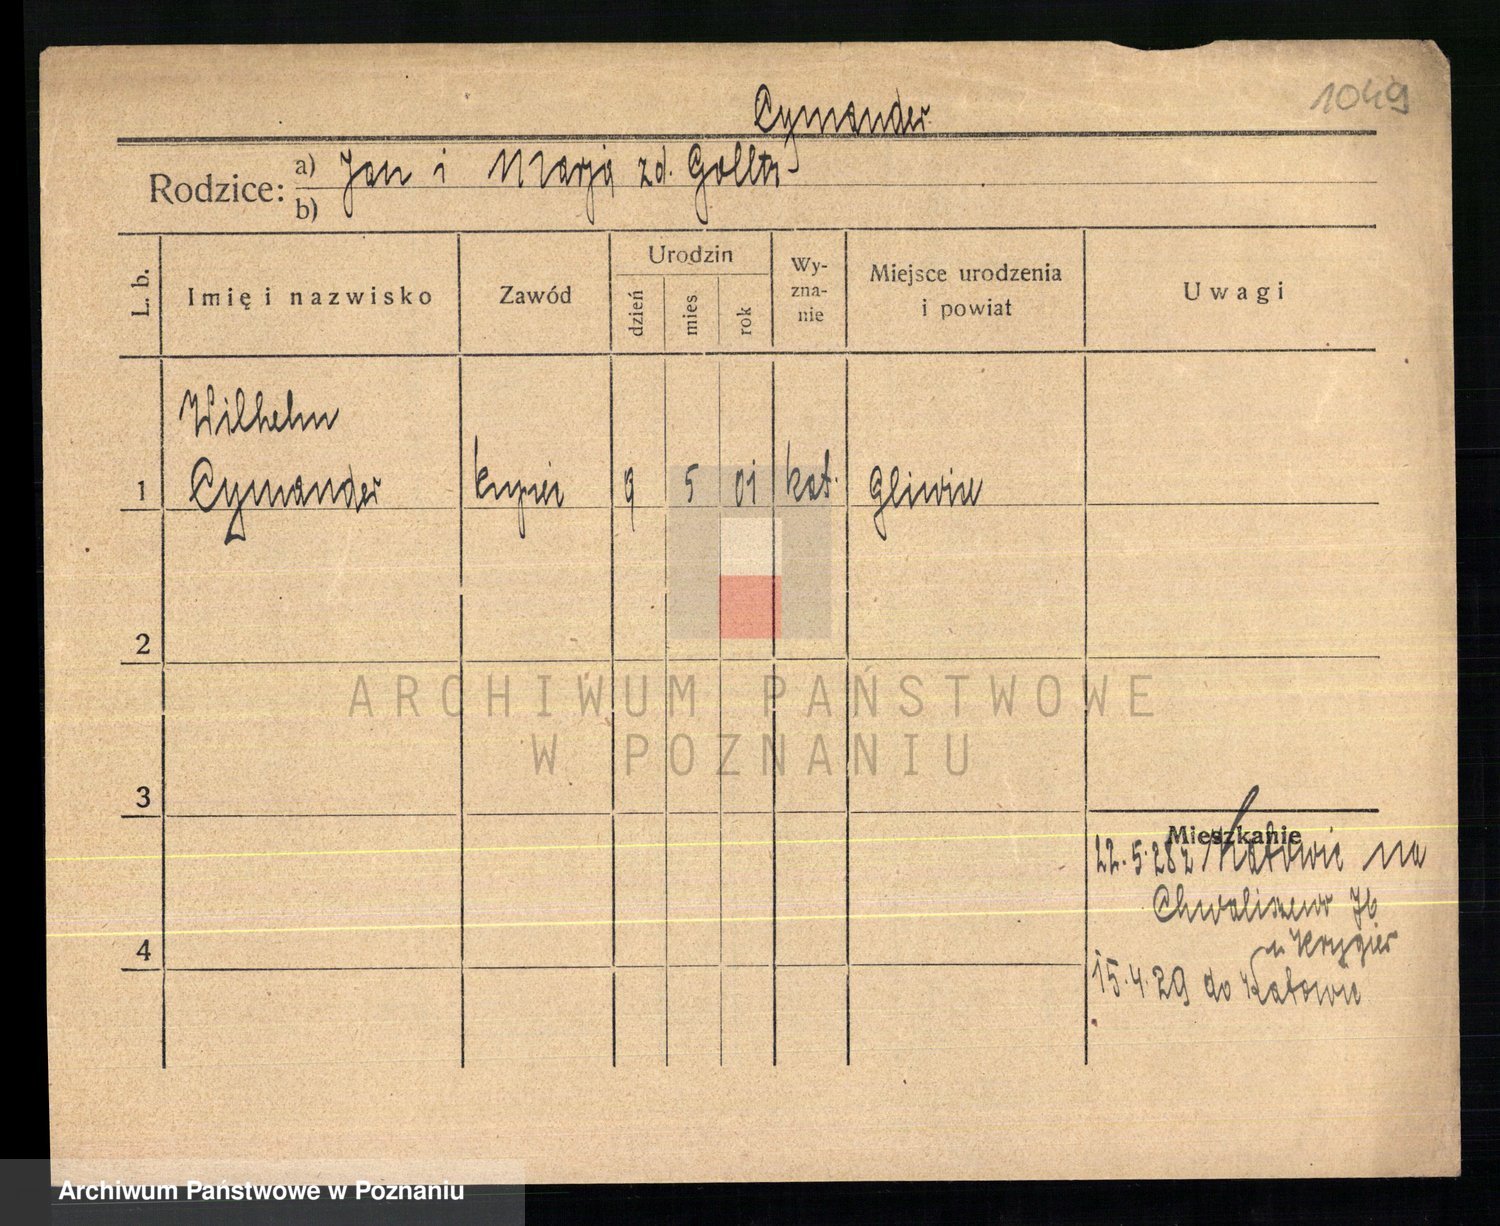 1049
Cymander
Rodzice: a) Jan i Marja zd.
b)
L. b.
Imię i nazwisko
Zawód
Urodzin
dzień
mies.
rok
Wy-
zna-
nie
Miejsce urodzenia
i powiat
Uwagi
Wilhelm
1 Cymander kupiec 9 5 01 kat. Gliwice
2
ARCHIWUM PAŃSTWOWE
W POZNANIU
3
Mieszkanie
22.5.28 z Katowic na
Chwaliszewo
u Krygier
4
15.4.29 do Katowic
Archiwum Państwowe w Poznaniu